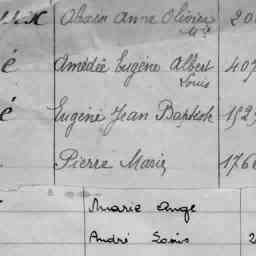 Anne Olivier 20
Mie
é Amédée Eugène Albert 407
Louis
é Eugène Jean Baptiste 152
Pierre Marie 176
Marie Ange
André Louis 2